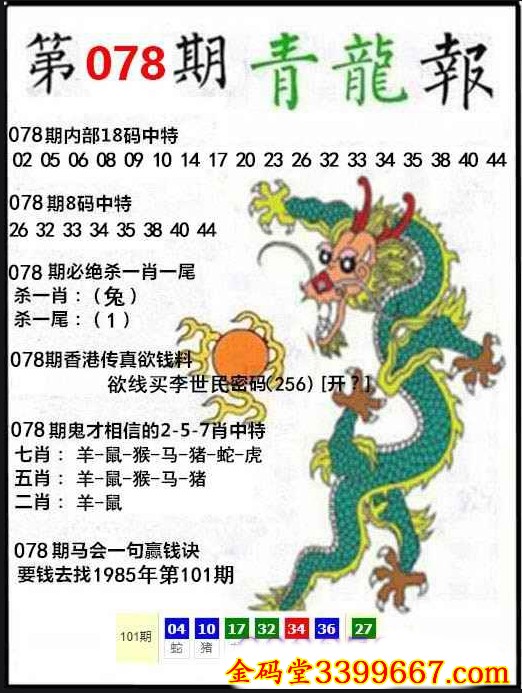 第078期 青龍報
078期内部18码中特
02 05 06 08 09 10 14 17 20 23 26 32 33 34 35 38 40 44
078期8码中特
26 32 33 34 35 38 40 44
078 期必绝杀一肖一尾
杀一肖：（兔）
杀一尾：（1）
078期香港传真欲钱料
欲线买李世民密码(256) [开？]
078期鬼才相信的2-5-7肖中特
七肖： 羊-鼠-猴-马-猪-蛇-虎
五肖： 羊-鼠-猴-马-猪
二肖： 羊-鼠
078期马会一句赢钱诀
要钱去找1985年第101期
101期 04 10 17 32 34 36 27
蛇 猪
金码堂3399667.com